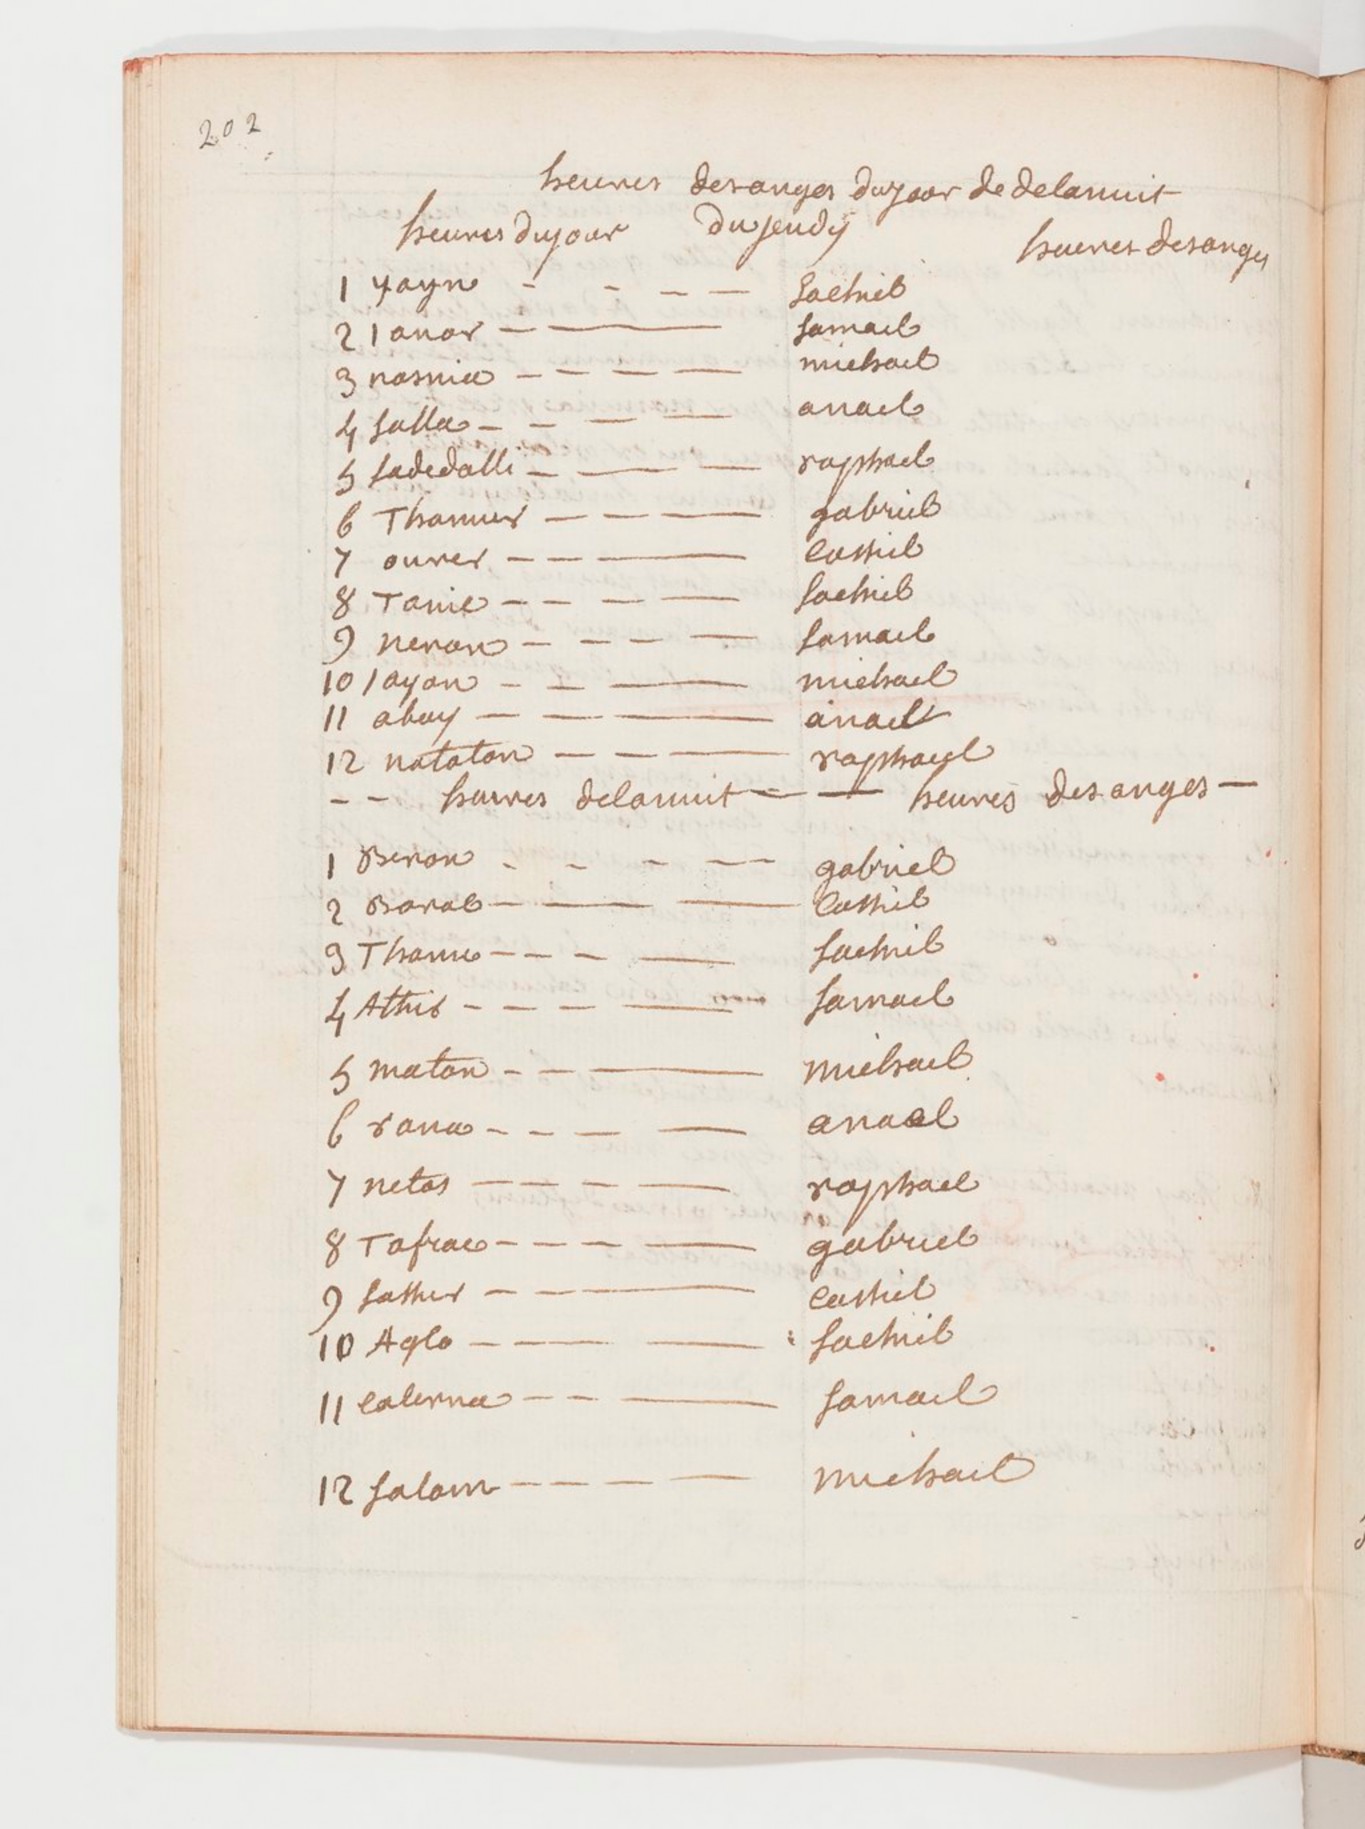 202
heures des anges du jour de delanuit
heures du jour du jeudy heures des anges
1 yayn - - - - Sachiel
2 Janor - - Samael
3 nasnia - - - - - michael
4 Salla - - - - anael
5 Sadedalli - - - raphael
6 Thamur - - - - gabriel
7 ourer - - - Cassiel
8 Tanie - - - - Sachiel
9 neron - - - - Samael
10 Jayon - - - - michael
11 abay - - - - anael
12 natalon - - - raphael
- - heures delanuit - - heures des anges -
1 Beron - - - - - gabriel
2 Barol - - - - Cassiel
3 Thanu - - - - Sachiel
4 Athis - - - - Samael
5 maton - - - michael
6 rana - - - - anael
7 netos - - - - raphael
8 Tafrac - - - - gabriel
9 Sassur - - - Cassiel
10 Aglo - - - Sachiel
11 Calerna - - - Samael
12 Salam - - - - michael